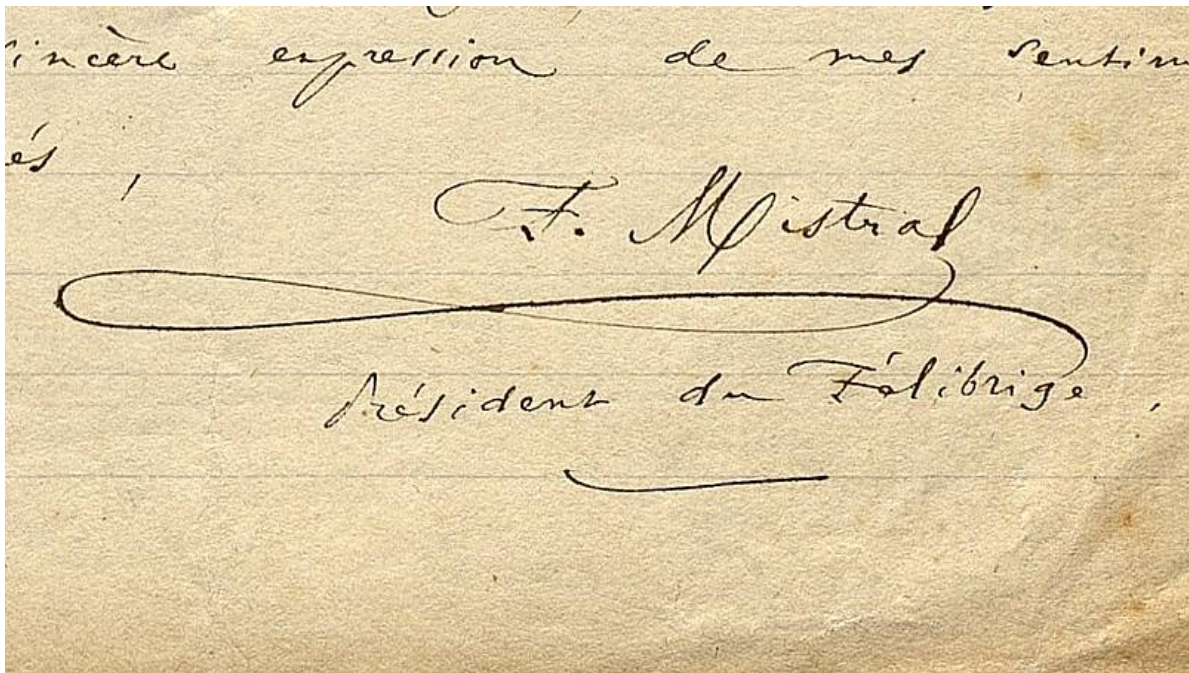 sincère expression de mes sentim
és,
F. Mistral
Président du Félibrige,